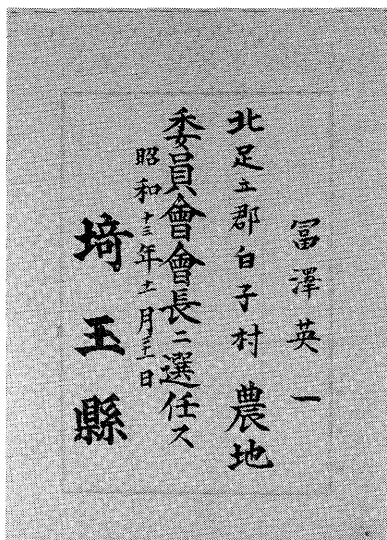 冨澤英一
北足立郡白子村農地
委員會會長ニ選任ス
昭和十三年十一月三十一日
埼玉縣